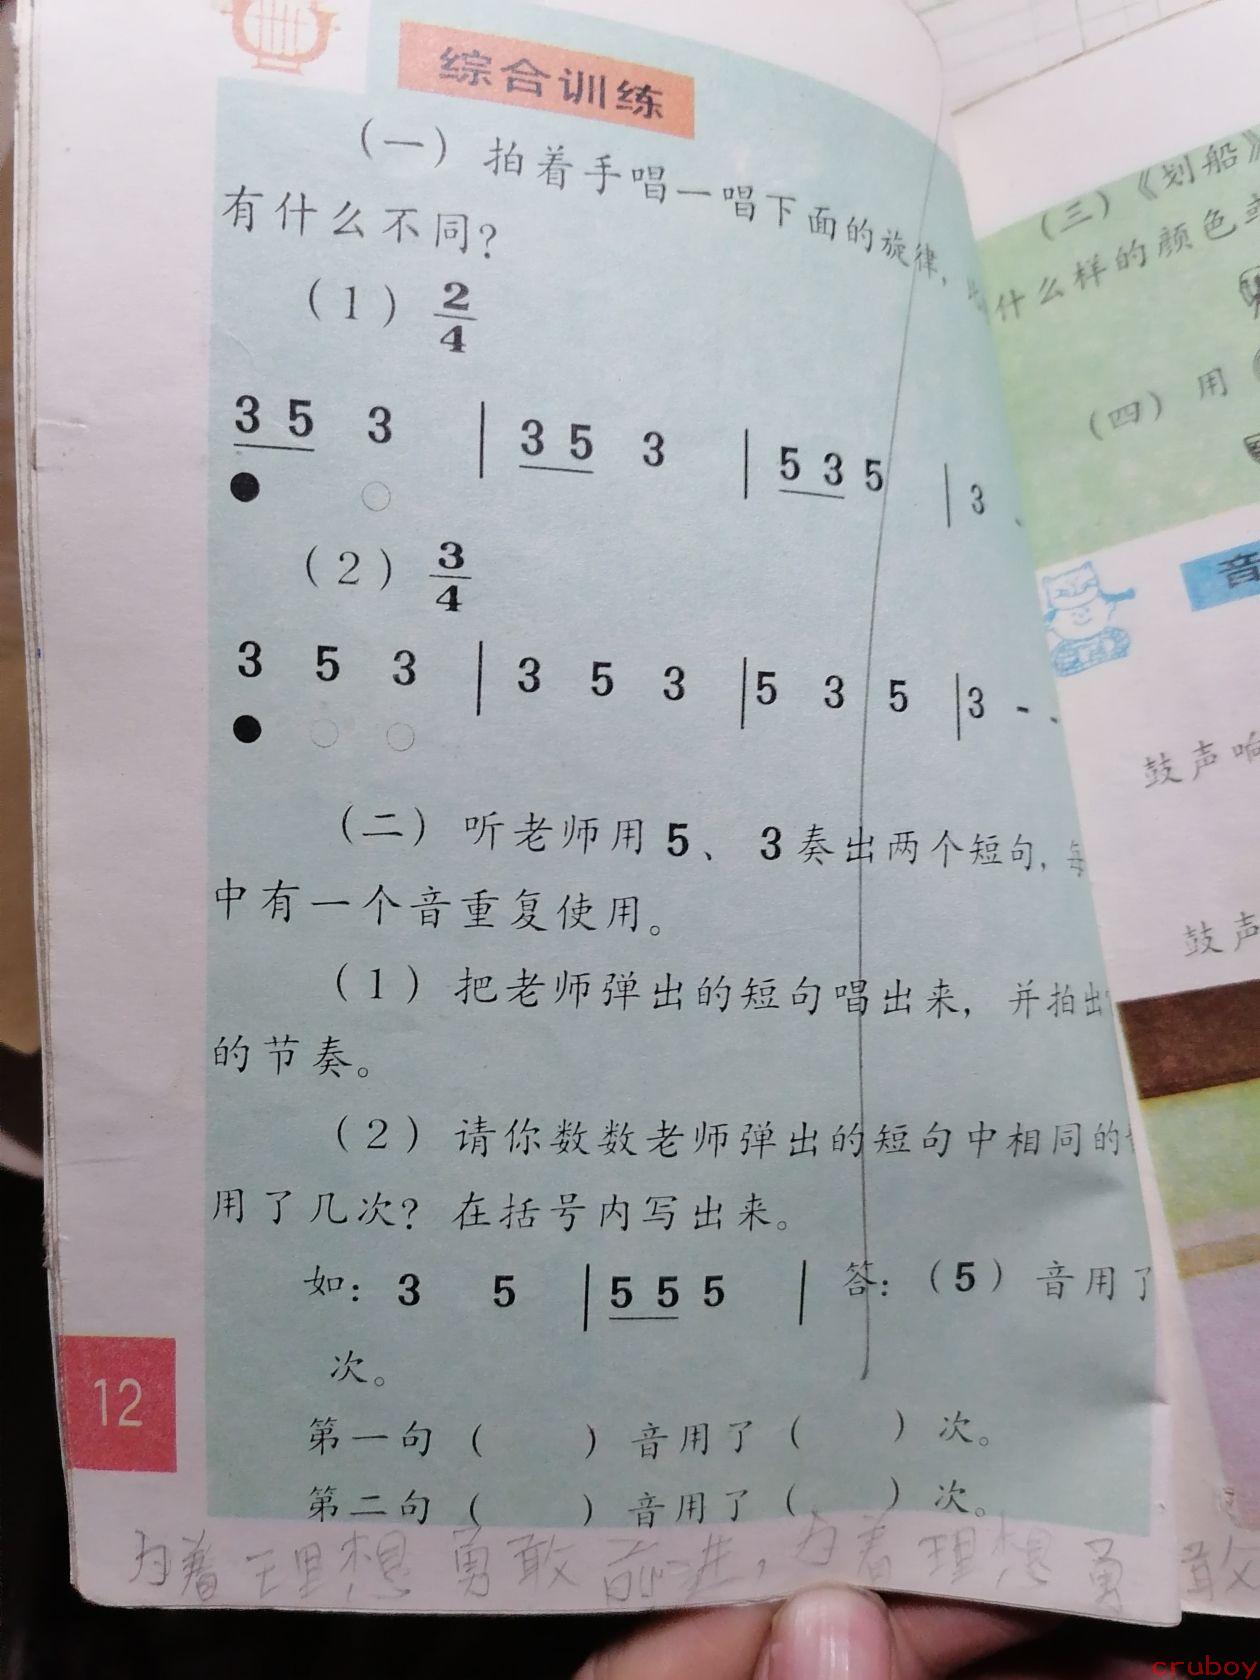 综合训练
（一）拍着手唱一唱下面的旋律，
有什么不同？
（1）2/4
3 5 3 | 3 5 3 | 5 3 5 | 3 -
（2）3/4
3 5 3 | 3 5 3 | 5 3 5 | 3 - -
（二）听老师用 5、3 奏出两个短句，每
中有一个音重复使用。
（1）把老师弹出的短句唱出来，并拍出
的节奏。
（2）请你数数老师弹出的短句中相同的
用了几次？在括号内写出来。
如：3 5 | 5 5 5 | 答：（5）音用了
次。
第一句（ ）音用了（ ）次。
第二句（ ）音用了（ ）次。
12
为着理想勇敢前进，为着理想勇敢
（三）《划船》
什么样的颜色
（四）用
音
鼓声响
鼓声
cruboy